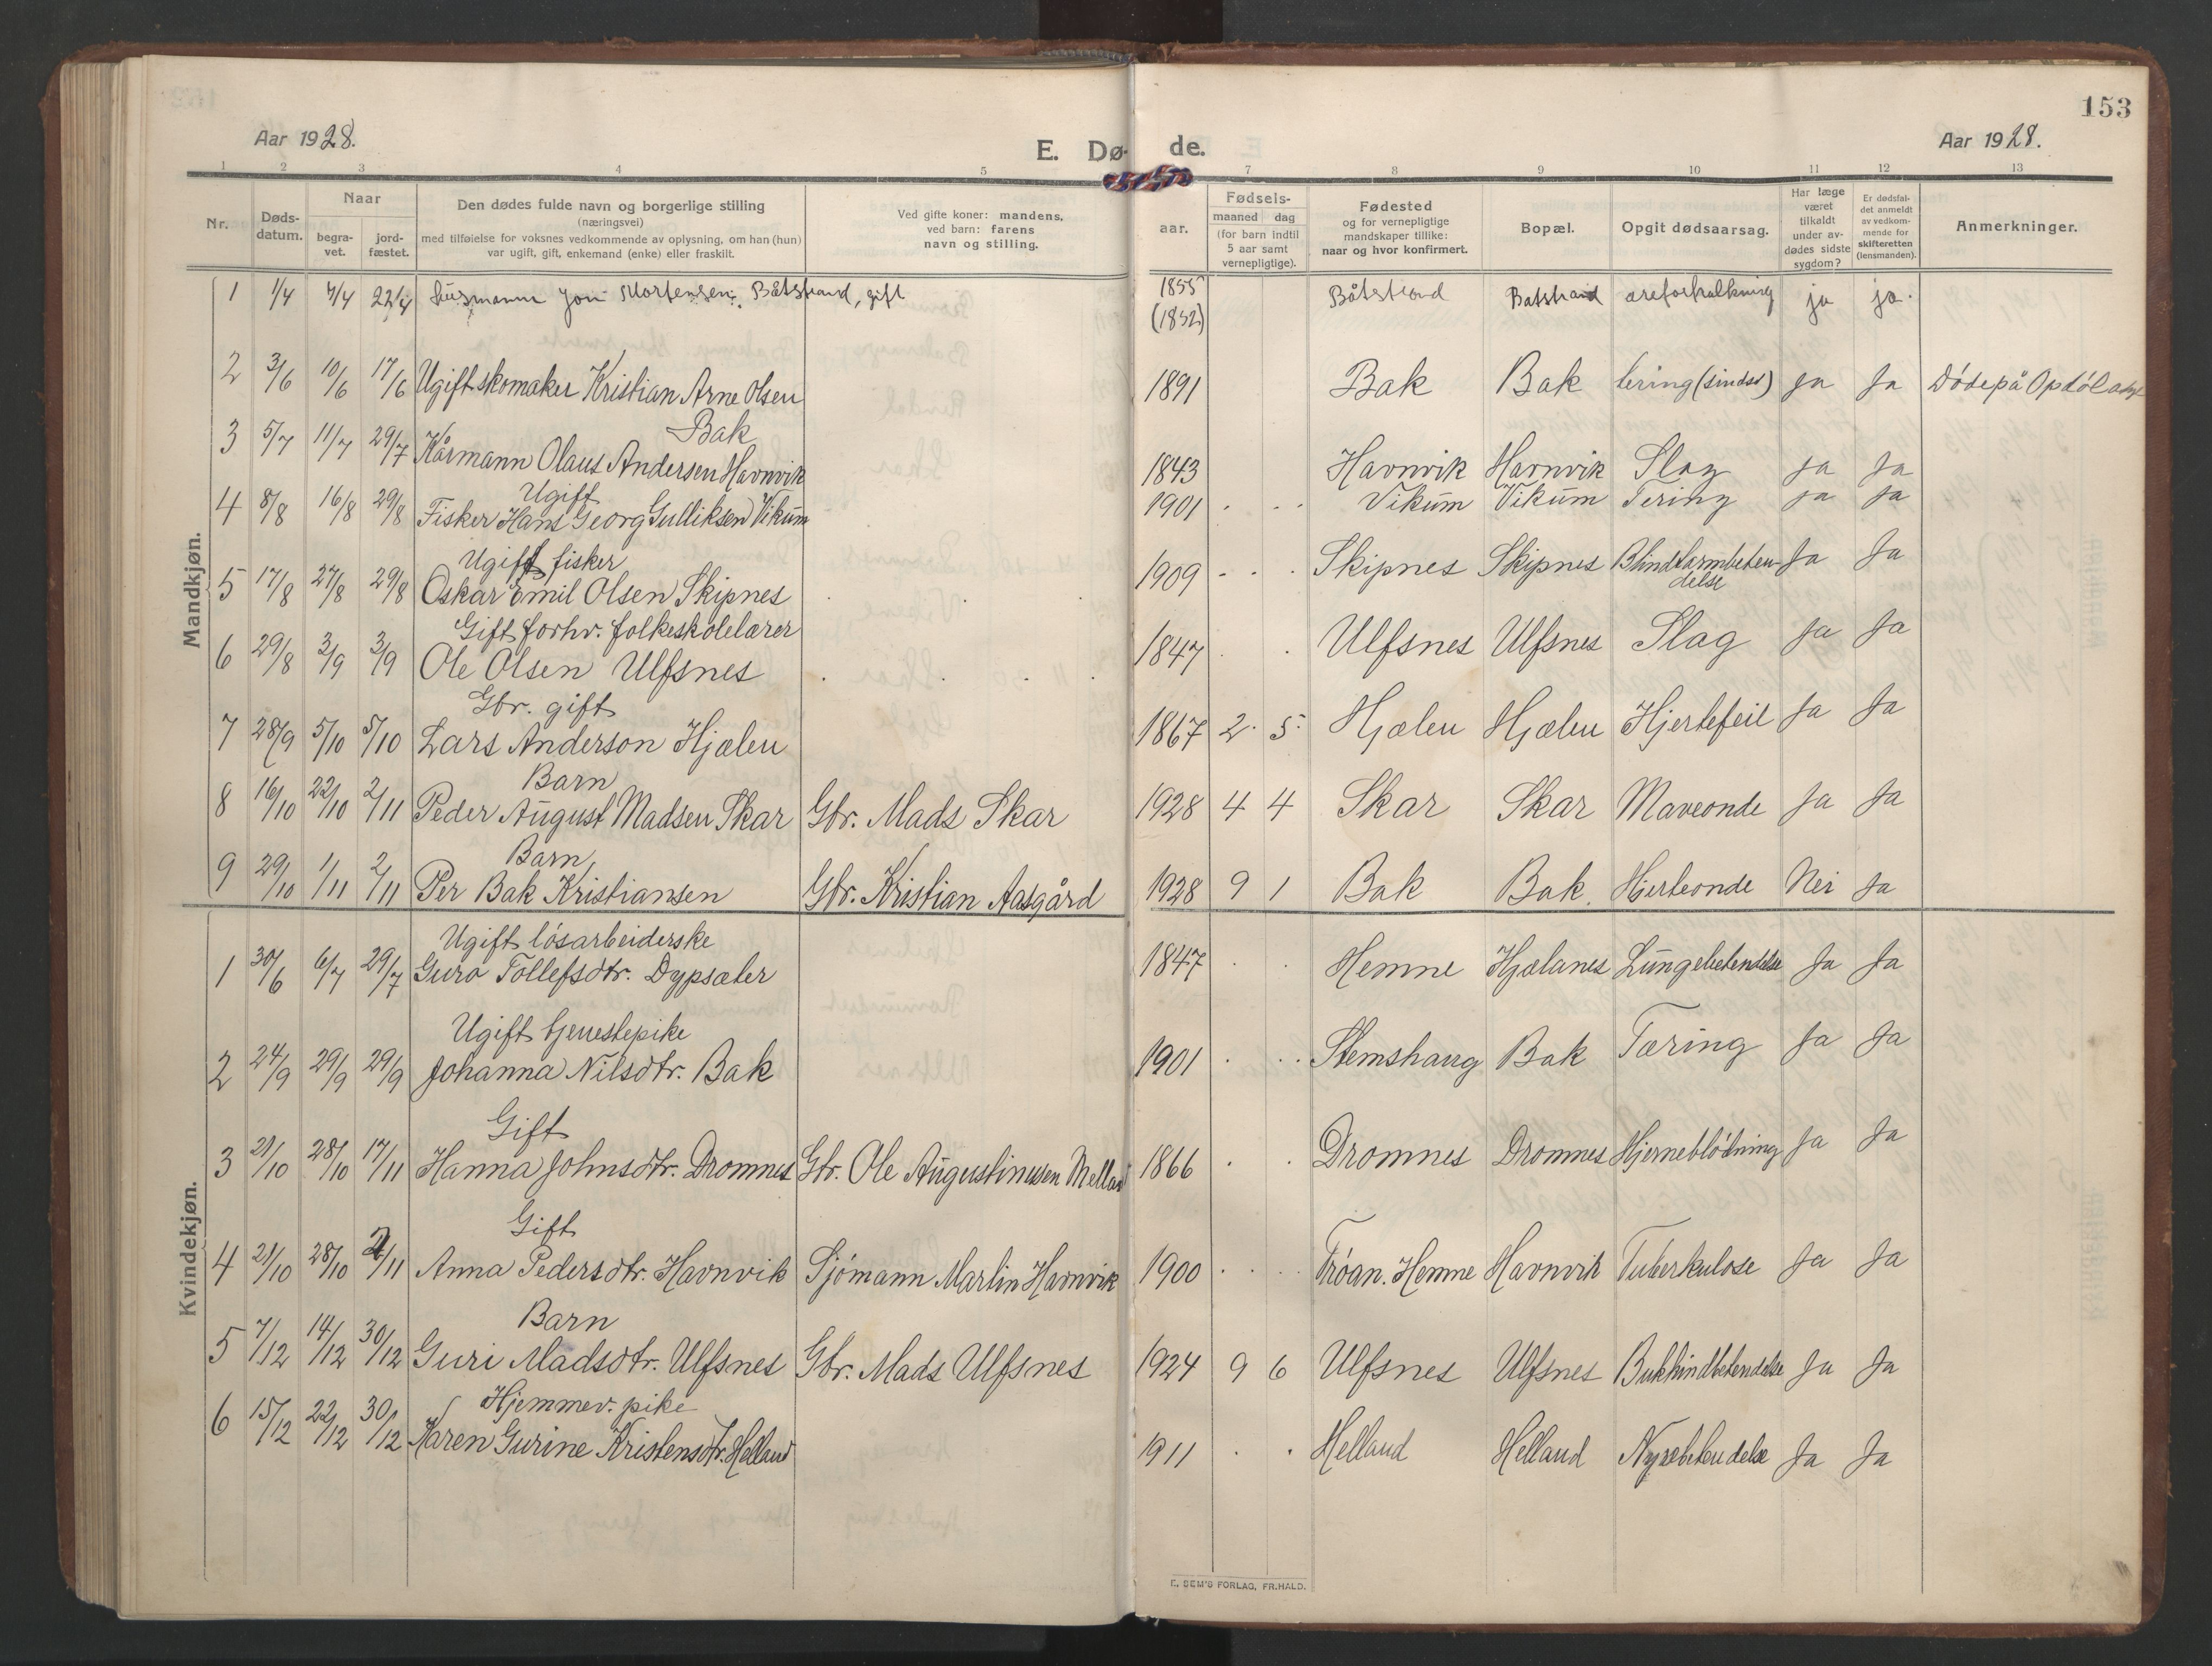 153
Aar 1928.
E. Dø-
de.
Aar 1928.
1 2 3 4 5 7 8 9 10 11 12 13
Nr.
Døds-
datum.
Naar
begra-
vet.
jord-
fæstet.
Den dødes fulde navn og borgerlige stilling
(næringsvei)
med tilføielse for voksnes vedkommende av oplysning, om han (hun)
var ugift, gift, enkemand (enke) eller fraskilt.
Ved gifte koner: mandens,
ved barn: farens
navn og stilling.
aar.
Fødsels-
maaned dag
(for barn indtil
5 aar samt
vernepligtige).
Fødested
og for vernepligtige
mandskaper tillike:
naar og hvor konfirmert.
Bopæl.
Opgit dødsaarsag.
Har læge
været
tilkaldt
under av-
dødes sidste
sygdom?
Er dødsfal-
det anmeldt
av vedkom-
mende for
skifteretten
(lensmanden).
Anmerkninger.
Mandkjøn.
1 1/4 4/4 22/4 Husmann Jon Mortensen, Båtstrand, gift 1855 Båtstrand Båtstrand areforkalkning ja ja.
(1852)
2 3/6 10/6 17/6 Ugift skomaker Kristian Arne Olsen 1891 Bak Bak tering (sindss) ja Ja Döde på Opdöl asyl
Bak
3 5/7 11/7 29/7 Kårmann Olaus Andersen Havnvik 1843 Havnvik Havnvik Slag Ja Ja
Ugift
4 8/8 16/8 29/8 Fisker Hans Georg Gulliksen Vikum 1901 Vikum Vikum Tering Ja Ja
Ugift fisker
5 17/8 27/8 29/8 Oskar Emil Olsen Skipnes 1909 Skipnes Skipnes Blindtarmbeten- Ja Ja
delse
Gift forhv. folkeskolelærer
6 29/8 3/9 3/9 Ole Olsen Ulfsnes 1847 Ulfsnes Ulfsnes Slag Ja Ja
Gbr. gift
7 28/9 5/10 5/10 Lars Anderson Hjælen 1867 2. 5. Hjælen Hjælen Hjertefeil Ja Ja
Barn
8 16/10 22/10 2/11 Peder August Madsen Skar Gbr. Mads Skar 1928 4 4 Skar Skar Maveonde Ja Ja
Barn
9 29/10 1/11 2/11 Per Bak Kristiansen Gbr. Kristian Aasgård 1928 9 1 Bak Bak. Hjerteonde Nei Ja
Kvindekjøn.
Ugift lösarbeiderske
1 30/6 6/7 29/7 Guro Tollefsdtr. Dypsæter 1847 Hemne Hjælanes Lungebetendelse Ja Ja
Ugift tjenestepike
2 24/9 29/9 29/9 Johanna Nilsdtr. Bak 1901 Stemshaug Bak Tæring Ja Ja
Gift
3 21/10 28/10 17/11 Hanna Johnsdtr. Dromnes Gbr. Ole Augustinusen Melland 1866 Dromnes Dromnes Hjerneblödning Ja Ja
Gift
4 21/10 28/10 2/11 Anna Pedersdtr. Havnvik Sjömann Martin Havnvik 1900 Tröan. Hemne Havnvik Tuberkulose Ja Ja
Barn
5 7/12 14/12 30/12 Guri Madsdtr. Ulfsnes Gbr. Mads Ulfsnes 1924 9 6 Ulfsnes Ulfsnes Bukhindbetendelse Ja Ja
Hjemmev. pike
6 15/12 22/12 30/12 Karen Gurine Kristensdtr. Helland 1911 Helland Helland Nyrebetendelse Ja Ja
E. SEM'S FORLAG, FR.HALD.